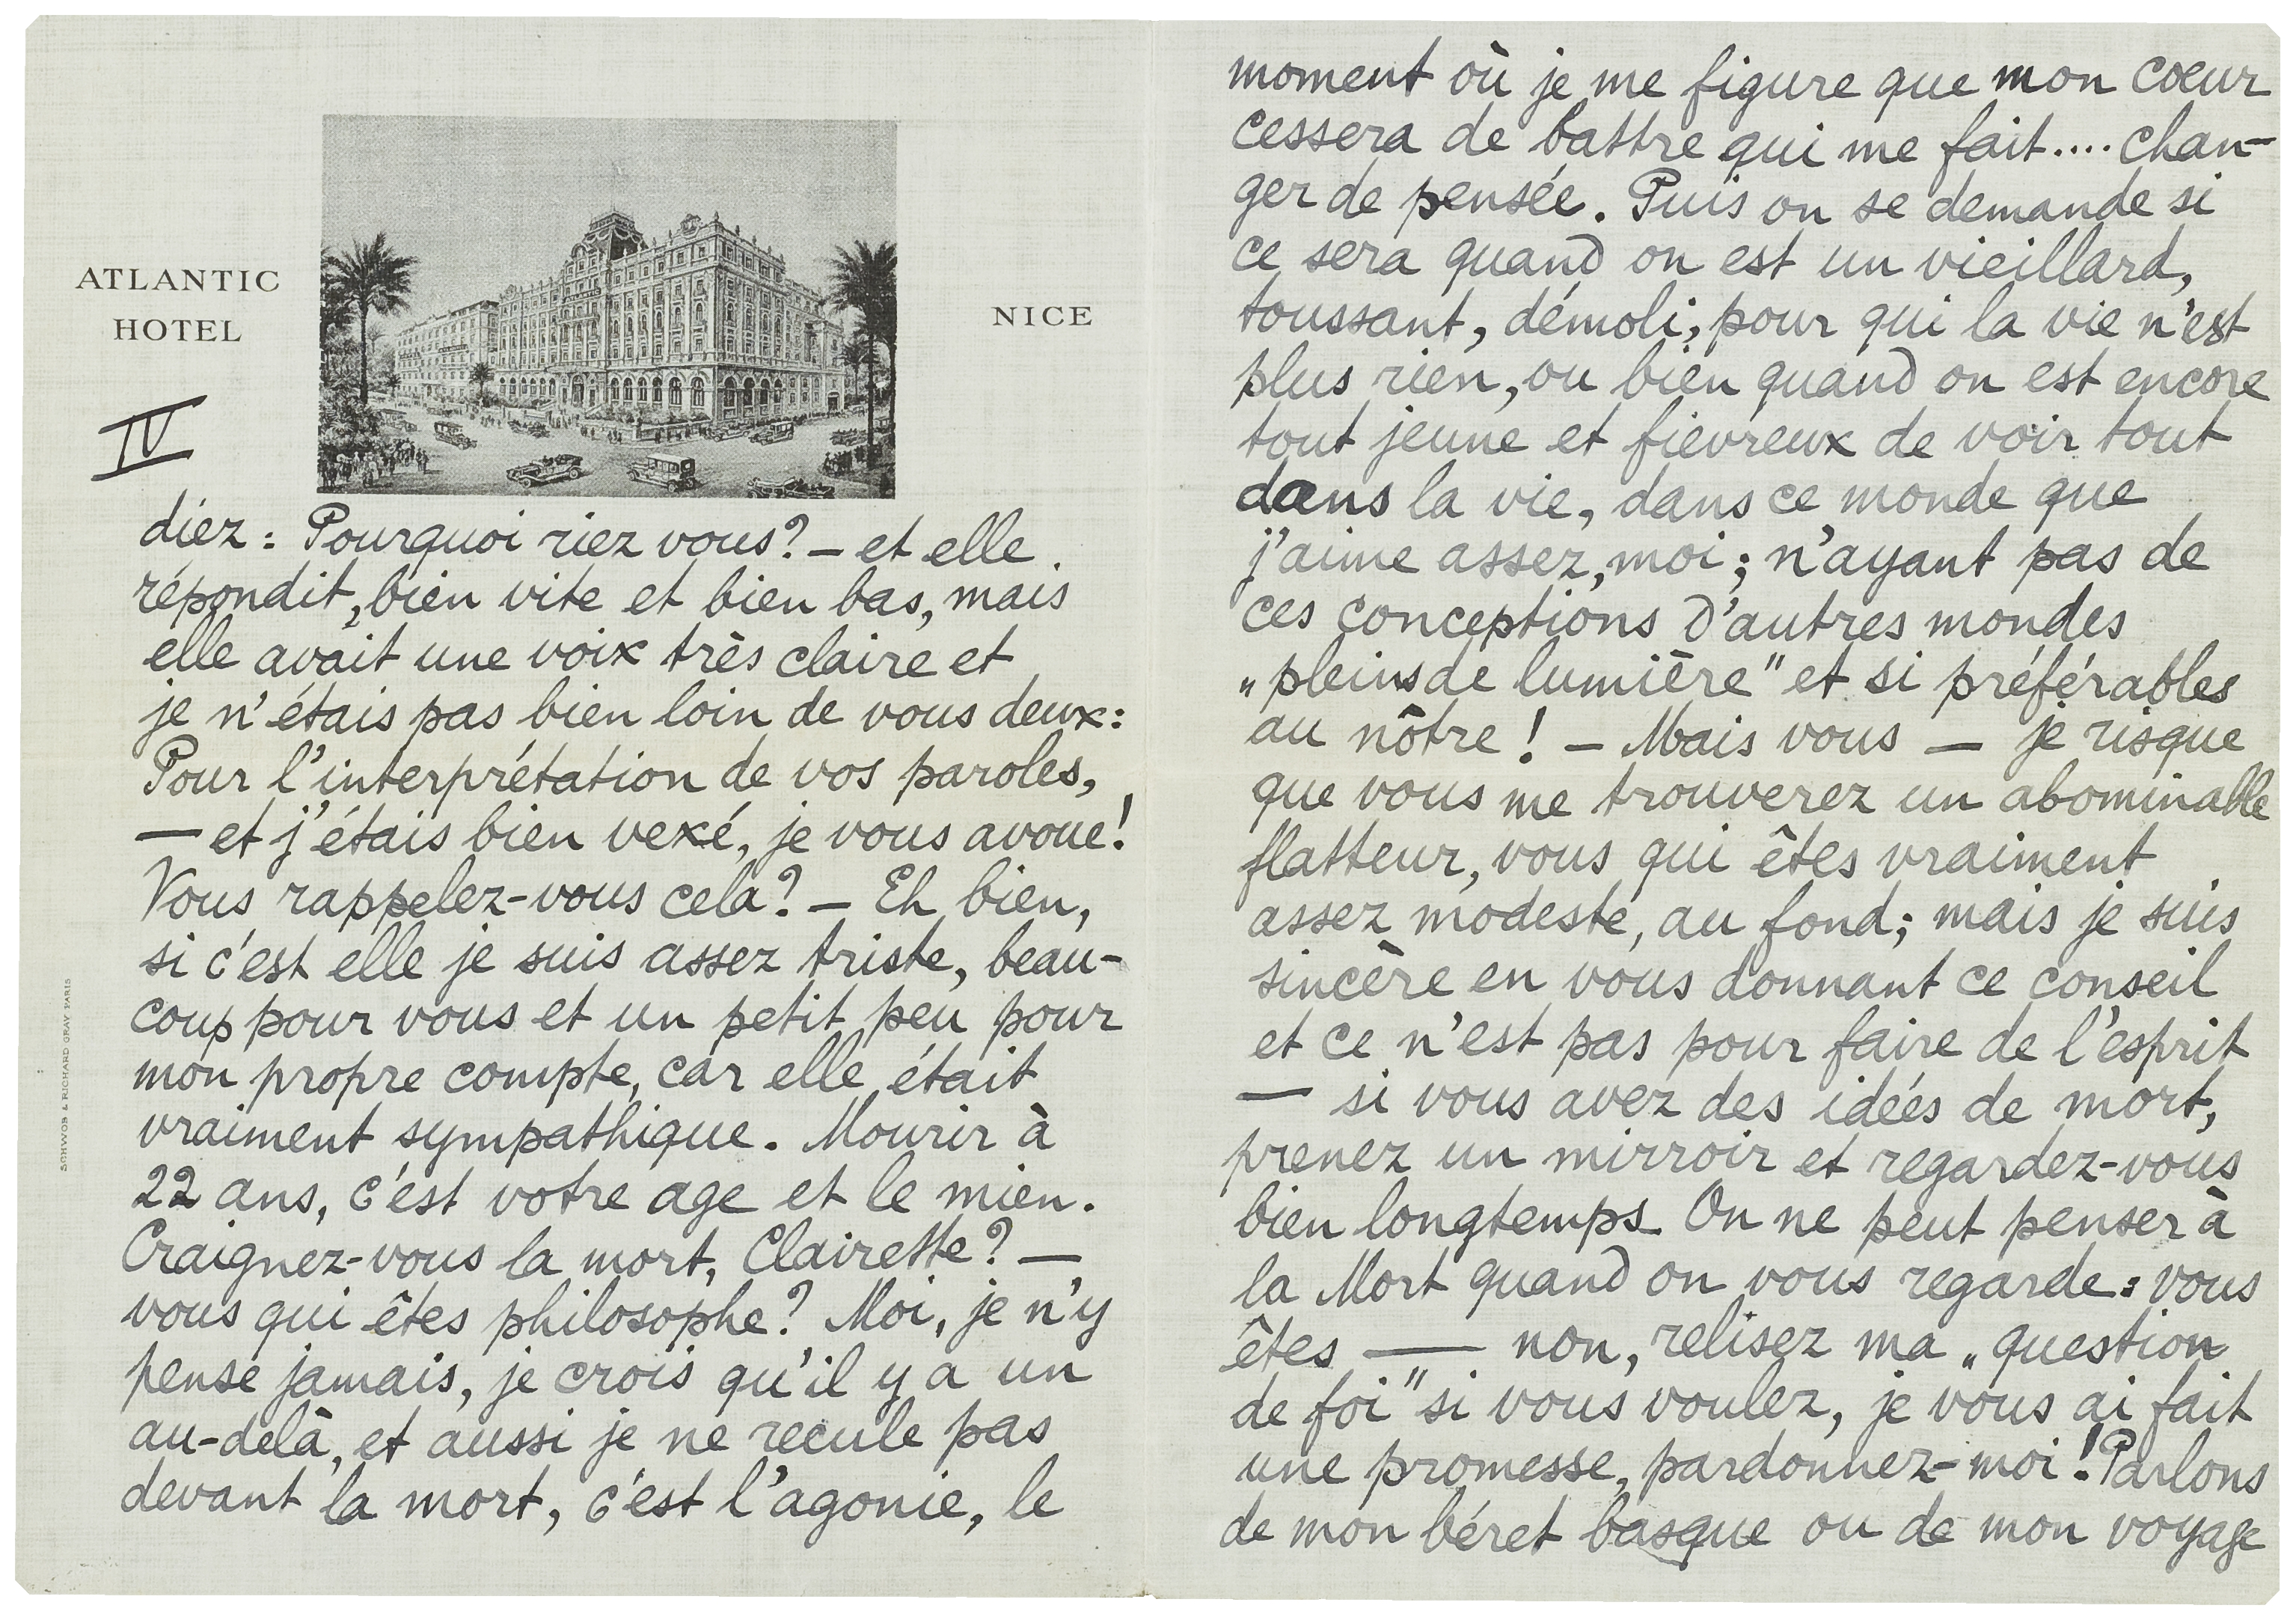 ATLANTIC
HOTEL
NICE
IV
diez : Pourquoi riez vous? – et elle
répondit, bien vite et bien bas, mais
elle avait une voix très claire et
je n'étais pas bien loin de vous deux:
Pour l'interprétation de vos paroles,
— et j'étais bien vexé, je vous avoue!
Vous rappelez-vous cela? – Eh bien,
si c'est elle je suis assez triste, beau-
coup pour vous et un petit peu pour
mon propre compte, car elle était
vraiment sympathique. Mourir à
22 ans, c'est votre age et le mien.
Craignez-vous la mort, Clairette? —
vous qui êtes philosophe? Moi, je n'y
pense jamais, je crois qu'il y a un
au-delà, et aussi je ne recule pas
devant la mort, c'est l'agonie, le
SCHWOB & RICHARD GRAV PARIS
moment où je me figure que mon coeur
cessera de battre qui me fait.... chan-
ger de pensée. Puis on se demande si
ce sera quand on est un vieillard,
toussant, démoli, pour qui la vie n'est
plus rien, ou bien quand on est encore
tout jeune et fiévreux de voir tout
dans la vie, dans ce monde que
j'aime assez, moi; n'ayant pas de
ces conceptions d'autres mondes
„pleins de lumière" et si préférables
au nôtre! – Mais vous — je risque
que vous me trouverez un abominable
flatteur, vous qui êtes vraiment
assez modeste, au fond; mais je suis
sincère en vous donnant ce conseil
et ce n'est pas pour faire de l'esprit
— si vous avez des idées de mort,
prenez un mirroir et regardez-vous
bien longtemps. On ne peut penser à
la Mort quand on vous regarde: vous
êtes —— non, relisez ma „question
de foi" si vous voulez, je vous ai fait
une promesse, pardonnez-moi! Parlons
de mon béret basque ou de mon voyage